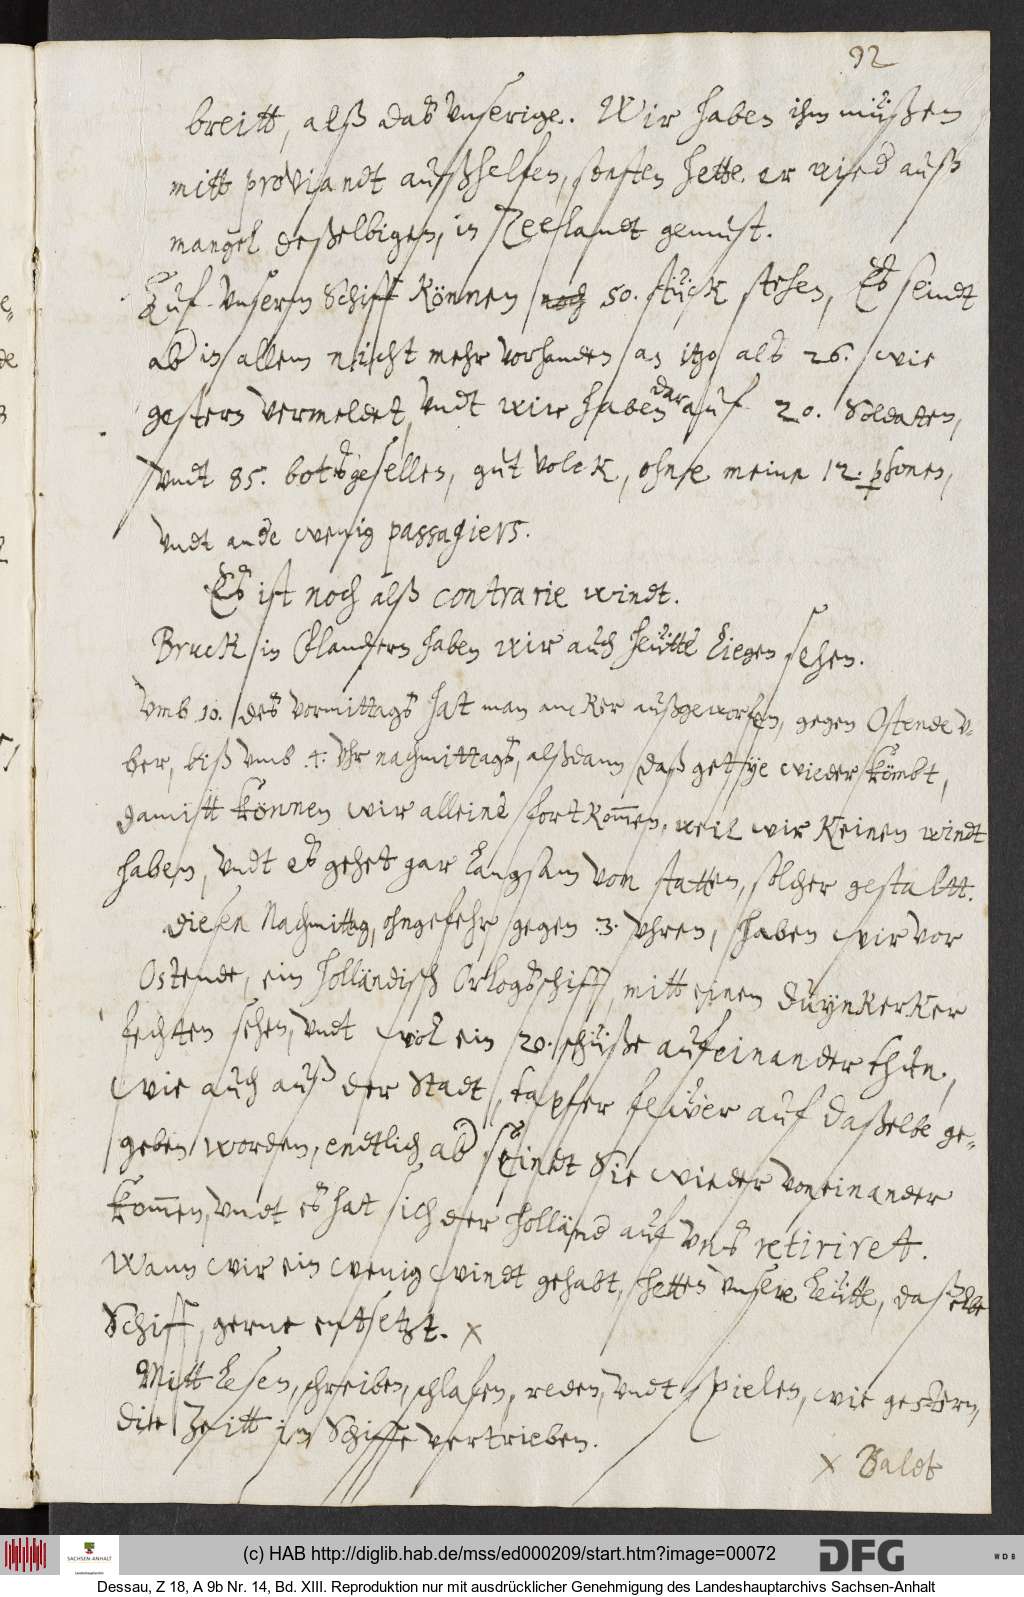 92
breitt, alß daß Vnserige. Wir haben ihm müßen
mitt proviandt außhelfen, sonsten hette er wied auß
mangel deßelbigen, in Seelandt gemust.
Auf Vnserm Schiff können noch 50. stück stehen, Es seindt
ab in allem nicht mehr vorhanden an itzo alß 26. wie
gestern vermeldet, vndt wir haben darauf 20. Soldaten,
vndt 85. botsgesellen, gut volck, ohne meine 12. p͟sonen,
vndt ande wenig passagiers.
Es ist noch alß contrarie windt.
Bruck in Flandern haben wir auch heütte liegen sehen.
Vmb 10. des vormittags hat man ancker außgeworfen, gegen Ostende v-
ber, biß vmb .4. Vhr nachmittags, alßdann daß getye wieder kömbt,
damitt können wir alleine fortkom̅en, weil wir keinen windt
haben, vndt es gehet gar langsam von statten, solcher gestaltt.
Diesen Nachmittag, ohngefehr gegen .3. vhren, haben wir vor
Ostende, ein holländisch Orlogsschiff, mitt einem Duynkerker
fechten sehen, vndt wol ein 20. schüße aufeinander thun,
wie auch auß der Stadt, tapfer feüer auf daßelbe ge-
geben worden, endtlich ab seindt Sie wieder voneinander
kom̅en, vndt es hat sich der holländ auf vns retiriret.
Wann wir ein wenig windt gehabt, hetten vnsere leütte, daßelbe
Schiff, gerne entsetzt. x
Mitt lesen, schreiben, schlafen, reden, vndt spielen, wie gestern,
die Zeitt im Schiffe vertrieben.
x Baldt
SACHSEN-ANHALT
Landeshauptarchiv
(c) HAB http://diglib.hab.de/mss/ed000209/start.htm?image=00072
DFG
WDB
Dessau, Z 18, A 9b Nr. 14, Bd. XIII. Reproduktion nur mit ausdrücklicher Genehmigung des Landeshauptarchivs Sachsen-Anhalt